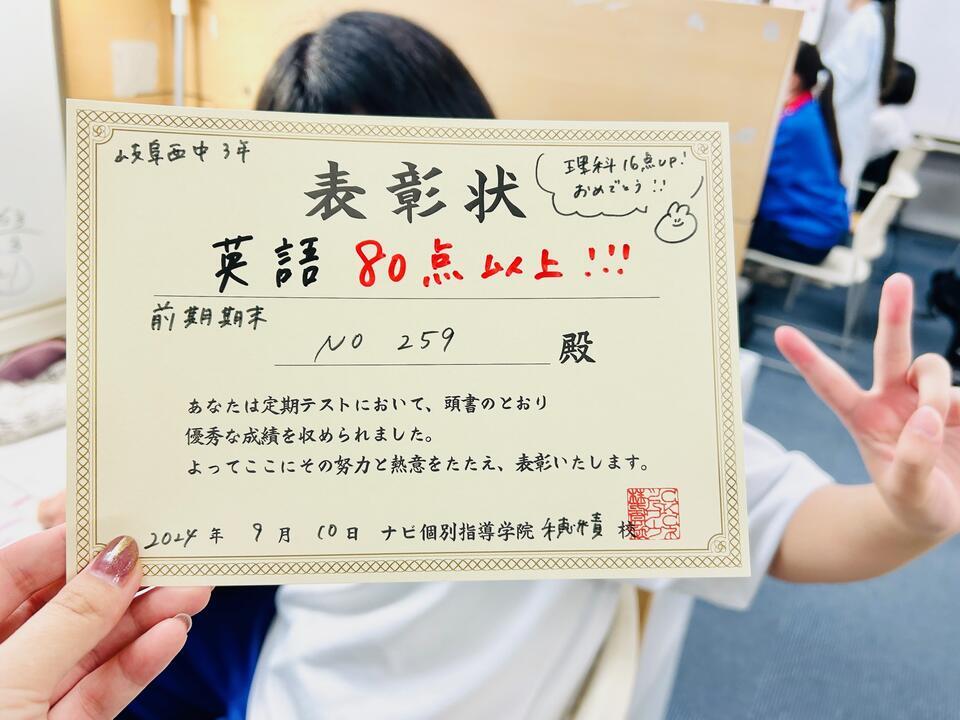 岐阜西中 3年
表彰状
理科16点UP!
おめでとう!!
英語 80点以上!!!
前期期末
NO 259 殿
あなたは定期テストにおいて、頭書のとおり
優秀な成績を収められました。
よってここにその努力と熱意をたたえ、表彰いたします。
2024年 9月 10日 ナビ個別指導学院 穂積 校